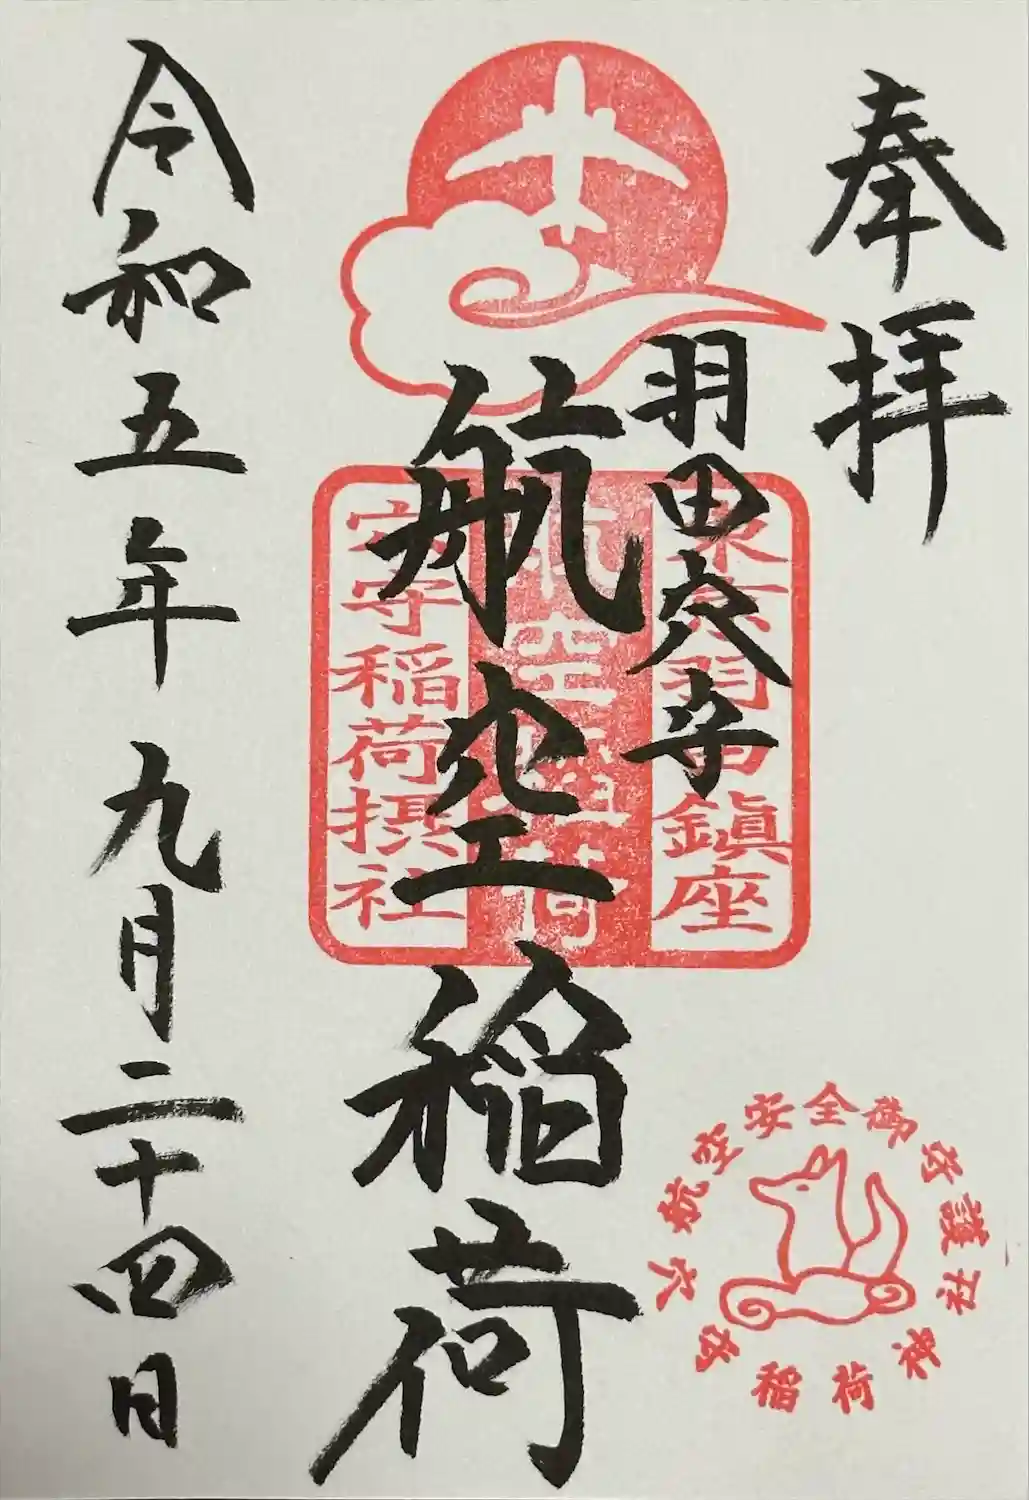 奉拝
羽田穴守
航空稲荷
令和五年九月二十四日
東京羽田鎮座
航空稲荷
穴守稲荷摂社
航空安全御守護
穴守稲荷